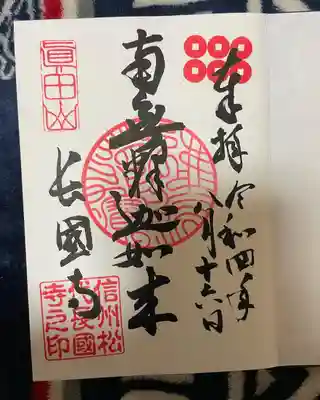 奉拝 令和四年
八月十六日
南無釈迦如来
眞田山
長國寺
信州松
代長國
寺之印